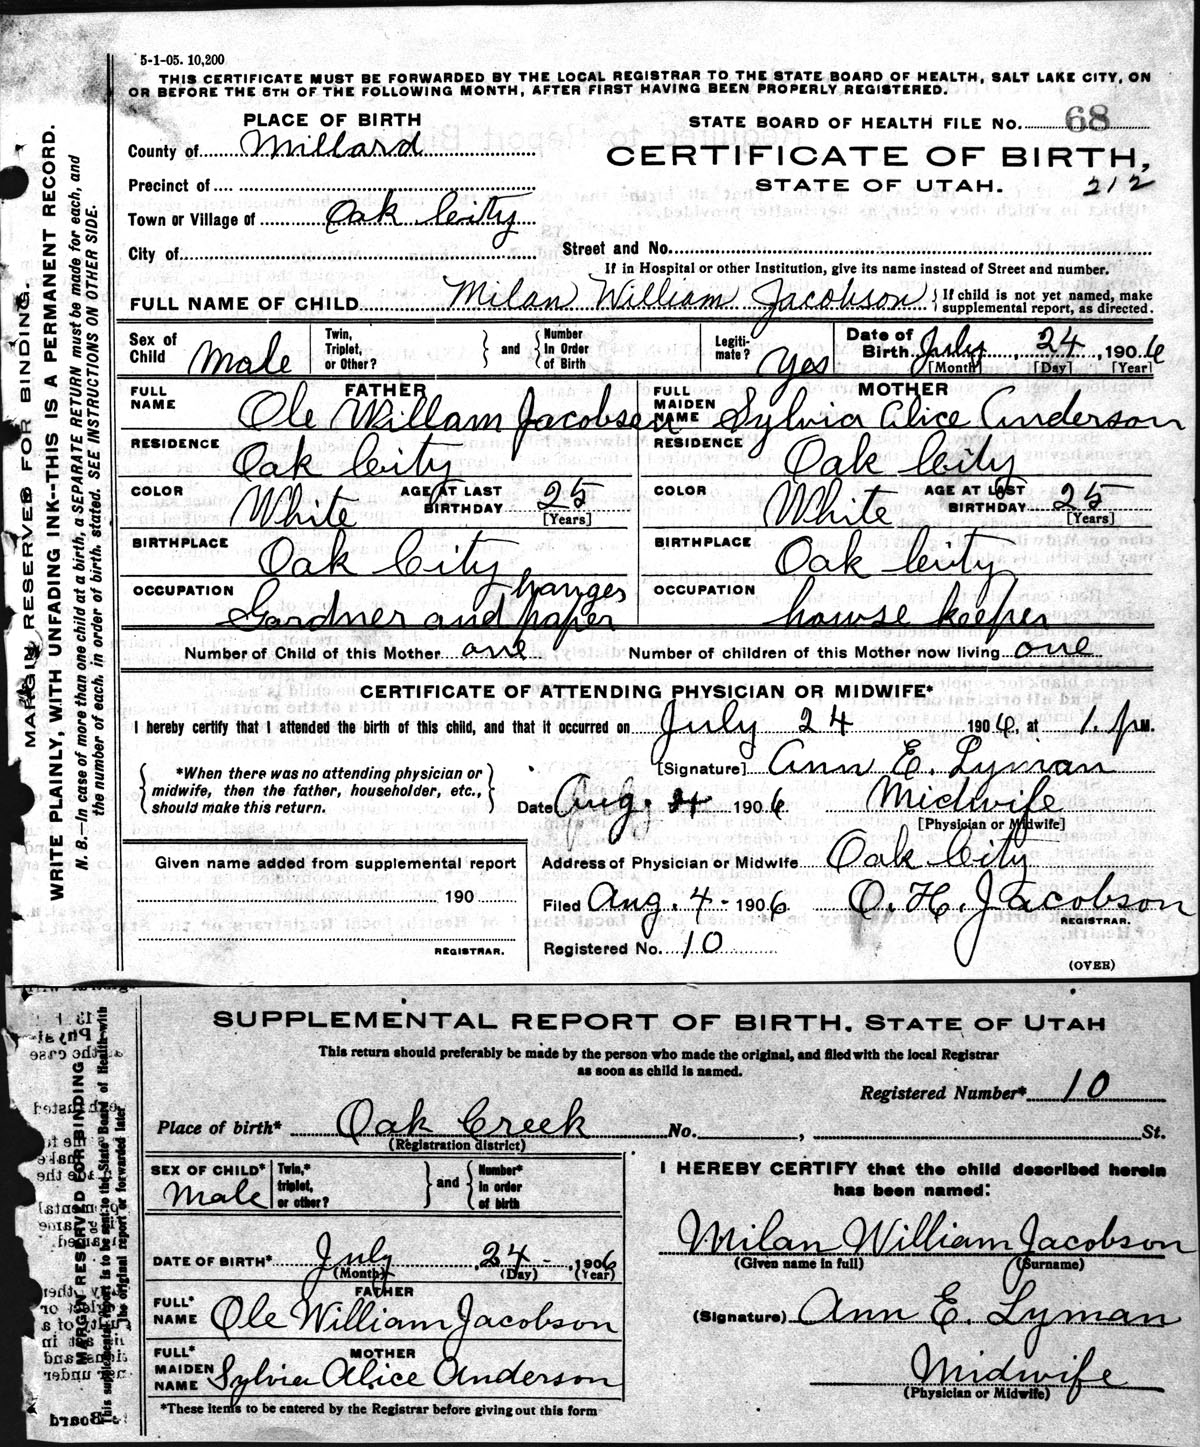 5-1-05. 10,200
THIS CERTIFICATE MUST BE FORWARDED BY THE LOCAL REGISTRAR TO THE STATE BOARD OF HEALTH, SALT LAKE CITY, ON
OR BEFORE THE 5TH OF THE FOLLOWING MONTH, AFTER FIRST HAVING BEEN PROPERLY REGISTERED.
PLACE OF BIRTH
STATE BOARD OF HEALTH FILE No. 68
County of Millard
CERTIFICATE OF BIRTH,
STATE OF UTAH. 212
Precinct of
Town or Village of Oak City
City of
Street and No.
If in Hospital or other Institution, give its name instead of Street and number.
FULL NAME OF CHILD Milan William Jacobson { If child is not yet named, make supplemental report, as directed.
Sex of Child Male
Twin, Triplet, or Other? } and { Number in Order of Birth
Legiti-mate? Yes
Date of Birth July, 24, 1906
[Month] [Day] [Year]
FATHER
FULL NAME Ole Willam Jacobsen
MOTHER
FULL MAIDEN NAME Sylvia Alice Anderson
RESIDENCE Oak City
RESIDENCE Oak City
COLOR White AGE AT LAST BIRTHDAY 25 [Years]
COLOR White AGE AT LAST BIRTHDAY 25 [Years]
BIRTHPLACE Oak City
BIRTHPLACE Oak City
OCCUPATION Gardner and paper hanger
OCCUPATION howse keeper
Number of Child of this Mother one
Number of children of this Mother now living one
CERTIFICATE OF ATTENDING PHYSICIAN OR MIDWIFE*
I hereby certify that I attended the birth of this child, and that it occurred on July 24 1906, at 1. P M.
[Signature] Ann E. Lyman
{ *When there was no attending physician or midwife, then the father, householder, etc., should make this return. }
Date Aug. 4 1906 Midwife
[Physician or Midwife]
Given name added from supplemental report
190
REGISTRAR.
Address of Physician or Midwife Oak City
Filed Aug. 4 - 1906. O. H. Jacobson
REGISTRAR.
Registered No. 10
(OVER)
MARGIN RESERVED FOR BINDING.
WRITE PLAINLY, WITH UNFADING INK--THIS IS A PERMANENT RECORD.
N. B.—In case of more than one child at a birth, a SEPARATE RETURN must be made for each, and
the number of each, in order of birth, stated. SEE INSTRUCTIONS ON OTHER SIDE.
SUPPLEMENTAL REPORT OF BIRTH. STATE OF UTAH
This return should preferably be made by the person who made the original, and filed with the local Registrar
as soon as child is named.
Registered Number* 10
Place of birth* Oak Creek No. , St.
(Registration district)
SEX OF CHILD* Male
Twin,* triplet, or other? } and { Number* in order of birth
I HEREBY CERTIFY that the child described herein
has been named:
Milan William Jacobson
(Given name in full) (Surname)
DATE OF BIRTH* July 24 - , 1906
(Month) (Day) (Year)
FATHER
FULL* NAME Ole William Jacobson
(Signature) Ann E. Lyman
MOTHER
FULL* MAIDEN NAME Sylvia Alice Anderson
Midwife
(Physician or Midwife)
*These items to be entered by the Registrar before giving out this form
MARGIN RESERVED FOR BINDING
This supplemental report is to be sent to the State Board of Health with
the original report or forwarded later